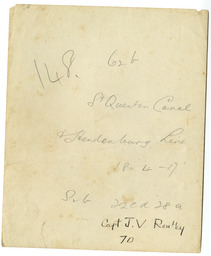 148. 62b
St Quentin Canal
& Hendenburg Line
18-4-17
S.b 22cd 28a
Capt J.V
70